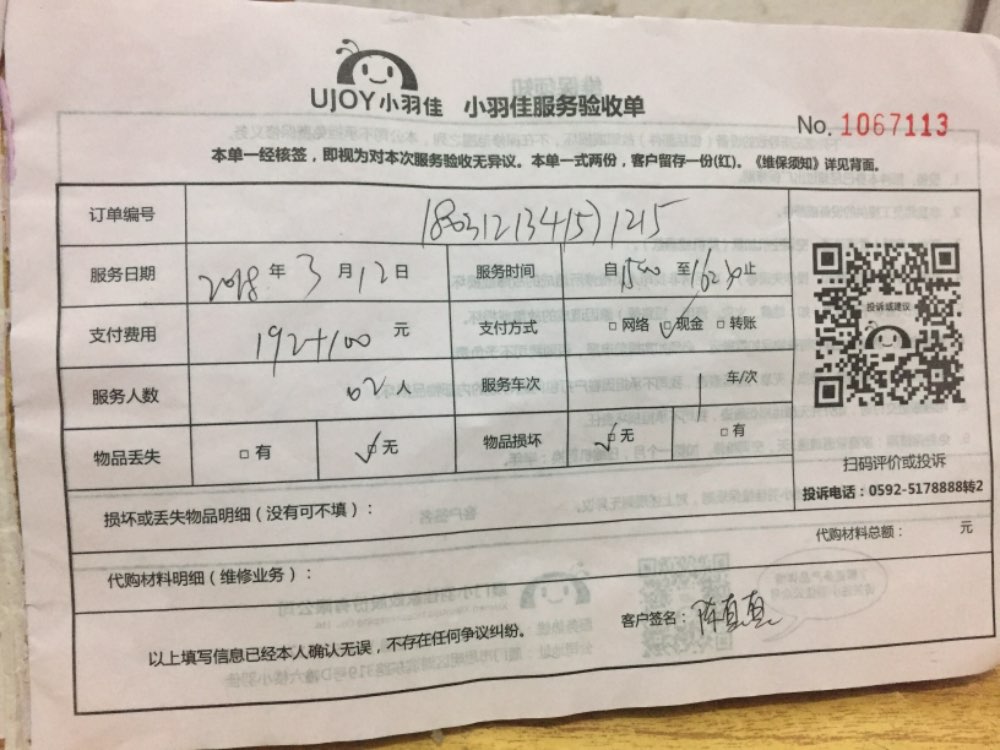 UJOY小羽佳 小羽佳服务验收单
No. 1067113
本单一经核签，即视为对本次服务验收无异议。本单一式两份，客户留存一份(红)。《维保须知》详见背面。
订单编号
服务日期 2018年3月12日 服务时间 自1500至1630止
支付费用 192+100 元 支付方式 □网络 ☑现金 □转账
投诉或建议
服务人数 02人 服务车次 1 年/次
物品丢失 □有 ☑无 物品损坏 ☑无 □有
扫码评价或投诉
投诉电话：0592-5178888转2
损坏或丢失物品明细（没有可不填）：
代购材料总额： 元
代购材料明细（维修业务）：
客户签名：陈真真
以上填写信息已经本人确认无误，不存在任何争议纠纷。